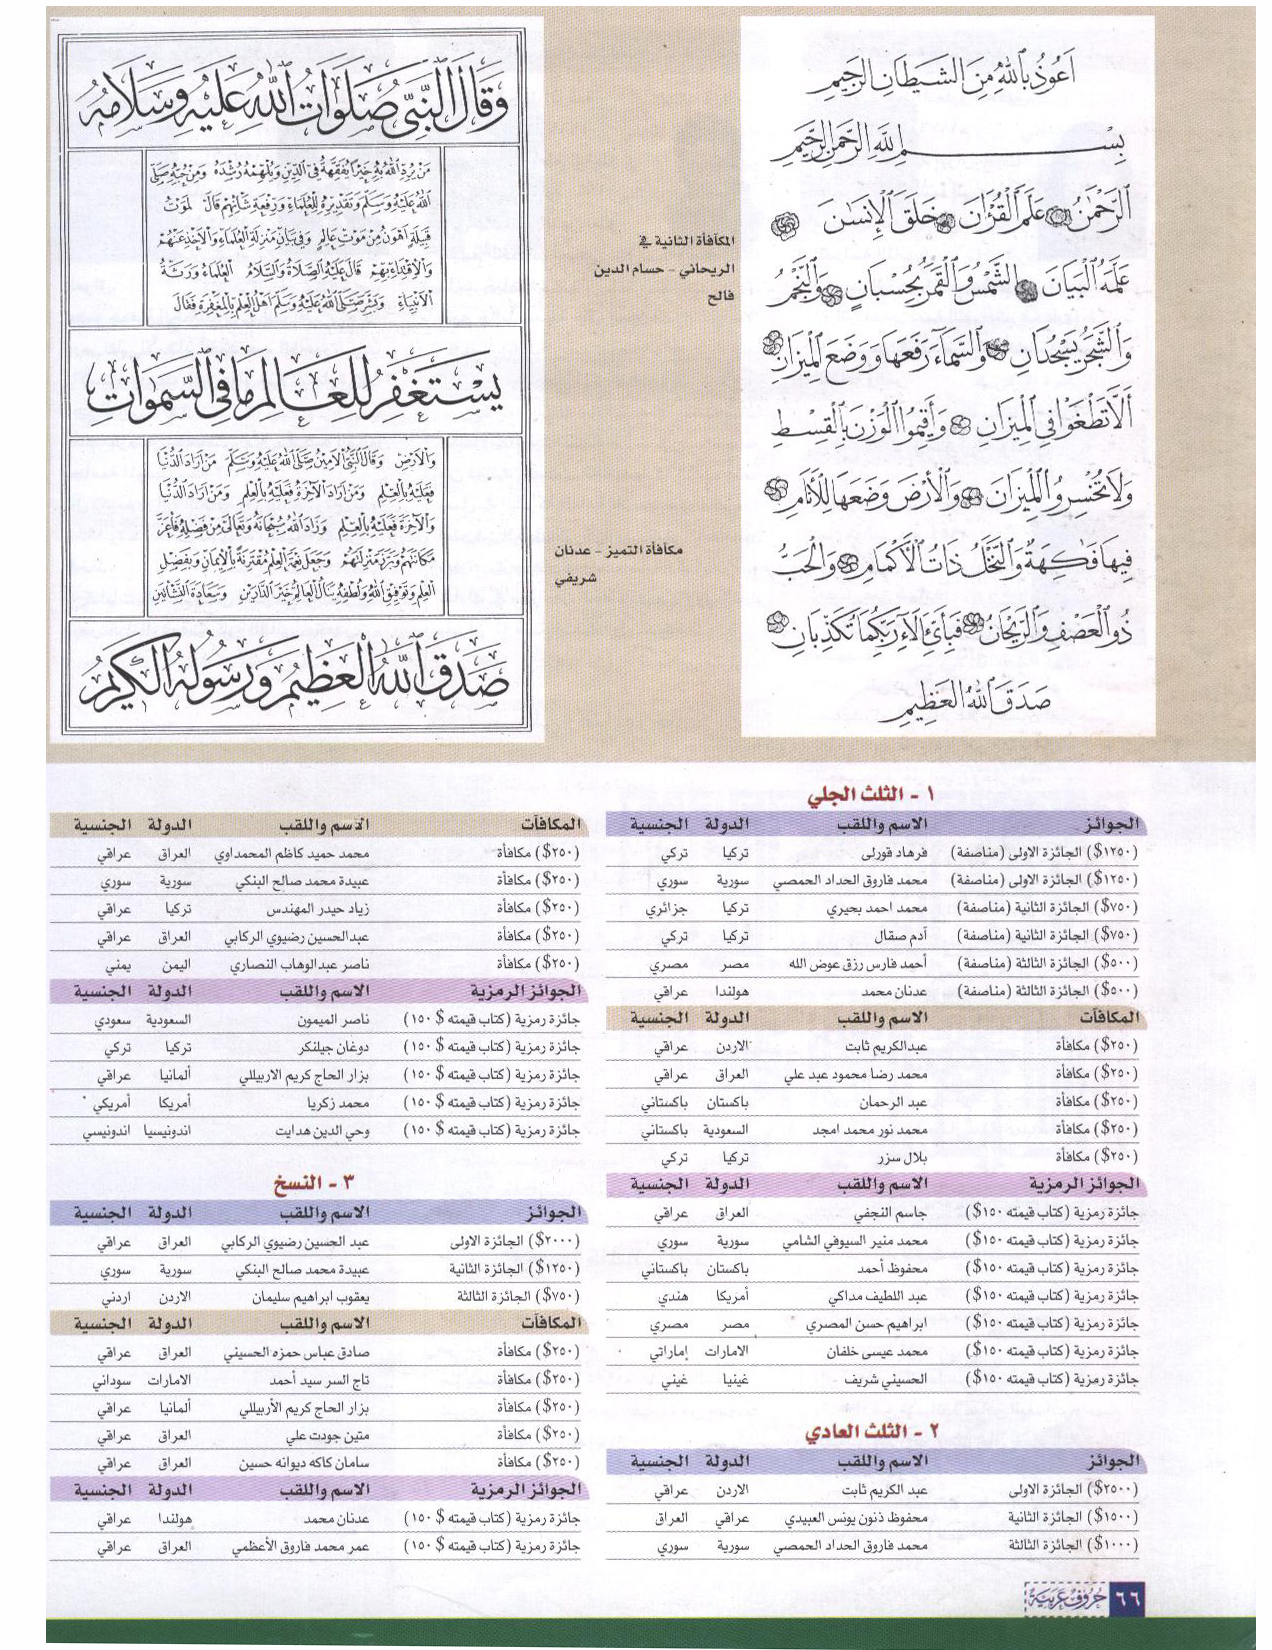 اَعُوذُ بِاللهِ مِنَ الشَّيْطَانِ الرَّجِيمِ
بِسْمِ اللهِ الرَّحْمٰنِ الرَّحِيمِ
الرَّحْمٰنُ عَلَّمَ الْقُرْآنَ خَلَقَ الْإِنْسَانَ
عَلَّمَهُ الْبَيَانَ الشَّمْسُ وَالْقَمَرُ بِحُسْبَانٍ وَالنَّجْمُ
وَالشَّجَرُ يَسْجُدَانِ وَالسَّمَاءَ رَفَعَهَا وَوَضَعَ الْمِيزَانَ
أَلَّا تَطْغَوْا فِي الْمِيزَانِ وَأَقِيمُوا الْوَزْنَ بِالْقِسْطِ
وَلَا تُخْسِرُوا الْمِيزَانَ وَالْأَرْضَ وَضَعَهَا لِلْأَنَامِ
فِيهَا فَاكِهَةٌ وَالنَّخْلُ ذَاتُ الْأَكْمَامِ وَالْحَبُّ
ذُو الْعَصْفِ وَالرَّيْحَانُ فَبِأَيِّ آلَاءِ رَبِّكُمَا تُكَذِّبَانِ
صَدَقَ اللهُ الْعَظِيمُ
المكافأة الثانية في
الريحاني - حسام الدين
فالح
مكافأة التميز - عدنان
شريفي
وَقَالَ النَّبِيُّ صَلَوَاتُ اللهِ عَلَيْهِ وَسَلَامُهُ
مَنْ يُرِدِ اللهُ بِهِ خَيْرًا يُفَقِّهْهُ فِي الدِّينِ وَيُلْهِمْهُ رُشْدَهُ وَمِنْ حُبِّهِ صَلَّى
اللهُ عَلَيْهِ وَسَلَّمَ وَتَقْدِيرِهِ لِلْعُلَمَاءِ وَرِفْعَةِ شَأْنِهِمْ قَالَ لَمَوْتُ
قَبِيلَةٍ أَهْوَنُ مِنْ مَوْتِ عَالِمٍ وَفِي بَيَانِ مَنْزِلَةِ الْعُلَمَاءِ وَالْأَخْذِ عَنْهُمْ
وَالْاِقْتِدَاءِ بِهِمْ قَالَ عَلَيْهِ الصَّلَاةُ وَالسَّلَامُ الْعُلَمَاءُ وَرَثَةُ
الْأَنْبِيَاءِ وَبَشَّرَ صَلَّى اللهُ عَلَيْهِ وَسَلَّمَ أَهْلَ الْعِلْمِ بِالْمَغْفِرَةِ فَقَالَ
يَسْتَغْفِرُ لِلْعَالِمِ مَا فِي السَّمٰوَاتِ
وَالْأَرْضِ وَقَالَ النَّبِيُّ الْأَمِينُ صَلَّى اللهُ عَلَيْهِ وَسَلَّمَ مَنْ أَرَادَ الدُّنْيَا
فَعَلَيْهِ بِالْعِلْمِ وَمَنْ أَرَادَ الْآخِرَةَ فَعَلَيْهِ بِالْعِلْمِ وَمَنْ أَرَادَ الدُّنْيَا
وَالْآخِرَةَ فَعَلَيْهِ بِالْعِلْمِ وَزَادَ اللهُ سُبْحَانَهُ وَتَعَالَى مِنْ فَضْلِهِ فَأَعَزَّ
مَكَانَتَهُمْ وَمَنْزِلَتَهُمْ وَجَعَلَ نِعْمَةَ الْعِلْمِ مُقْتَرِنَةً بِالْإِيمَانِ وَبِفَضْلِ
الْعِلْمِ وَتَوْفِيقِ اللهِ وَلُطْفِهِ يَنَالُ الْعَالِمُ خَيْرَ الدَّارَيْنِ وَسَعَادَةَ النَّشْأَتَيْنِ
صَدَقَ اللهُ الْعَظِيمُ وَرَسُولُهُ الْكَرِيمُ
١ - الثلث الجلي
الجوائز الاسم واللقب الدولة الجنسية
(١٢٥٠$) الجائزة الاولى (مناصفة) فرهاد قورلى تركيا تركي
(١٢٥٠$) الجائزة الاولى (مناصفة) محمد فاروق الحداد الحمصي سورية سوري
(٧٥٠$) الجائزة الثانية (مناصفة) محمد احمد بحيري تركيا جزائري
(٧٥٠$) الجائزة الثانية (مناصفة) آدم صقال تركيا تركي
(٥٠٠$) الجائزة الثالثة (مناصفة) أحمد فارس رزق عوض الله مصر مصري
(٥٠٠$) الجائزة الثالثة (مناصفة) عدنان محمد هولندا عراقي
المكافآت الاسم واللقب الدولة الجنسية
(٢٥٠$) مكافأة عبدالكريم ثابت الاردن عراقي
(٢٥٠$) مكافأة محمد رضا محمود عبد علي العراق عراقي
(٢٥٠$) مكافأة عبد الرحمان باكستان باكستاني
(٢٥٠$) مكافأة محمد نور محمد امجد السعودية باكستاني
(٢٥٠$) مكافأة بلال سزر تركيا تركي
الجوائز الرمزية الاسم واللقب الدولة الجنسية
جائزة رمزية (كتاب قيمته ١٥٠$) جاسم النجفي العراق عراقي
جائزة رمزية (كتاب قيمته ١٥٠$) محمد منير السيوفي الشامي سورية سوري
جائزة رمزية (كتاب قيمته ١٥٠$) محفوظ أحمد باكستان باكستاني
جائزة رمزية (كتاب قيمته ١٥٠$) عبد اللطيف مداكي أمريكا هندي
جائزة رمزية (كتاب قيمته ١٥٠$) ابراهيم حسن المصري مصر مصري
جائزة رمزية (كتاب قيمته ١٥٠$) محمد عيسى خلفان الامارات إماراتي
جائزة رمزية (كتاب قيمته ١٥٠$) الحسيني شريف غينيا غيني
٢ - الثلث العادي
الجوائز الاسم واللقب الدولة الجنسية
(٢٥٠٠$) الجائزة الاولى عبد الكريم ثابت الاردن عراقي
(١٥٠٠$) الجائزة الثانية محفوظ ذنون يونس العبيدي عراقي العراق
(١٠٠٠$) الجائزة الثالثة محمد فاروق الحداد الحمصي سورية سوري
المكافآت الاسم واللقب الدولة الجنسية
(٢٥٠$) مكافأة محمد حميد كاظم المحمداوي العراق عراقي
(٢٥٠$) مكافأة عبيدة محمد صالح البنكي سورية سوري
(٢٥٠$) مكافأة زياد حيدر المهندس تركيا عراقي
(٢٥٠$) مكافأة عبدالحسين رضيوي الركابي العراق عراقي
(٢٥٠$) مكافأة ناصر عبدالوهاب النصاري اليمن يمني
الجوائز الرمزية الاسم واللقب الدولة الجنسية
جائزة رمزية (كتاب قيمته $ ١٥٠) ناصر الميمون السعودية سعودي
جائزة رمزية (كتاب قيمته $ ١٥٠) دوغان جيلنكر تركيا تركي
جائزة رمزية (كتاب قيمته $ ١٥٠) بزار الحاج كريم الاربيللي ألمانيا عراقي
جائزة رمزية (كتاب قيمته $ ١٥٠) محمد زكريا أمريكا أمريكي
جائزة رمزية (كتاب قيمته $ ١٥٠) وحي الدين هدايت اندونيسيا اندونيسي
٣ - النسخ
الجوائز الاسم واللقب الدولة الجنسية
(٢٠٠٠$) الجائزة الاولى عبد الحسين رضيوي الركابي العراق عراقي
(١٢٥٠$) الجائزة الثانية عبيدة محمد صالح البنكي سورية سوري
(٧٥٠$) الجائزة الثالثة يعقوب ابراهيم سليمان الاردن اردني
المكافآت الاسم واللقب الدولة الجنسية
(٢٥٠$) مكافأة صادق عباس حمزه الحسيني العراق عراقي
(٢٥٠$) مكافأة تاج السر سيد أحمد الامارات سوداني
(٢٥٠$) مكافأة بزار الحاج كريم الأربيللي ألمانيا عراقي
(٢٥٠$) مكافأة متين جودت علي العراق عراقي
(٢٥٠$) مكافأة سامان كاكه ديوانه حسين العراق عراقي
الجوائز الرمزية الاسم واللقب الدولة الجنسية
جائزة رمزية (كتاب قيمته $ ١٥٠) عدنان محمد هولندا عراقي
جائزة رمزية (كتاب قيمته $ ١٥٠) عمر محمد فاروق الأعظمي العراق عراقي
٦٦ حروف عربية